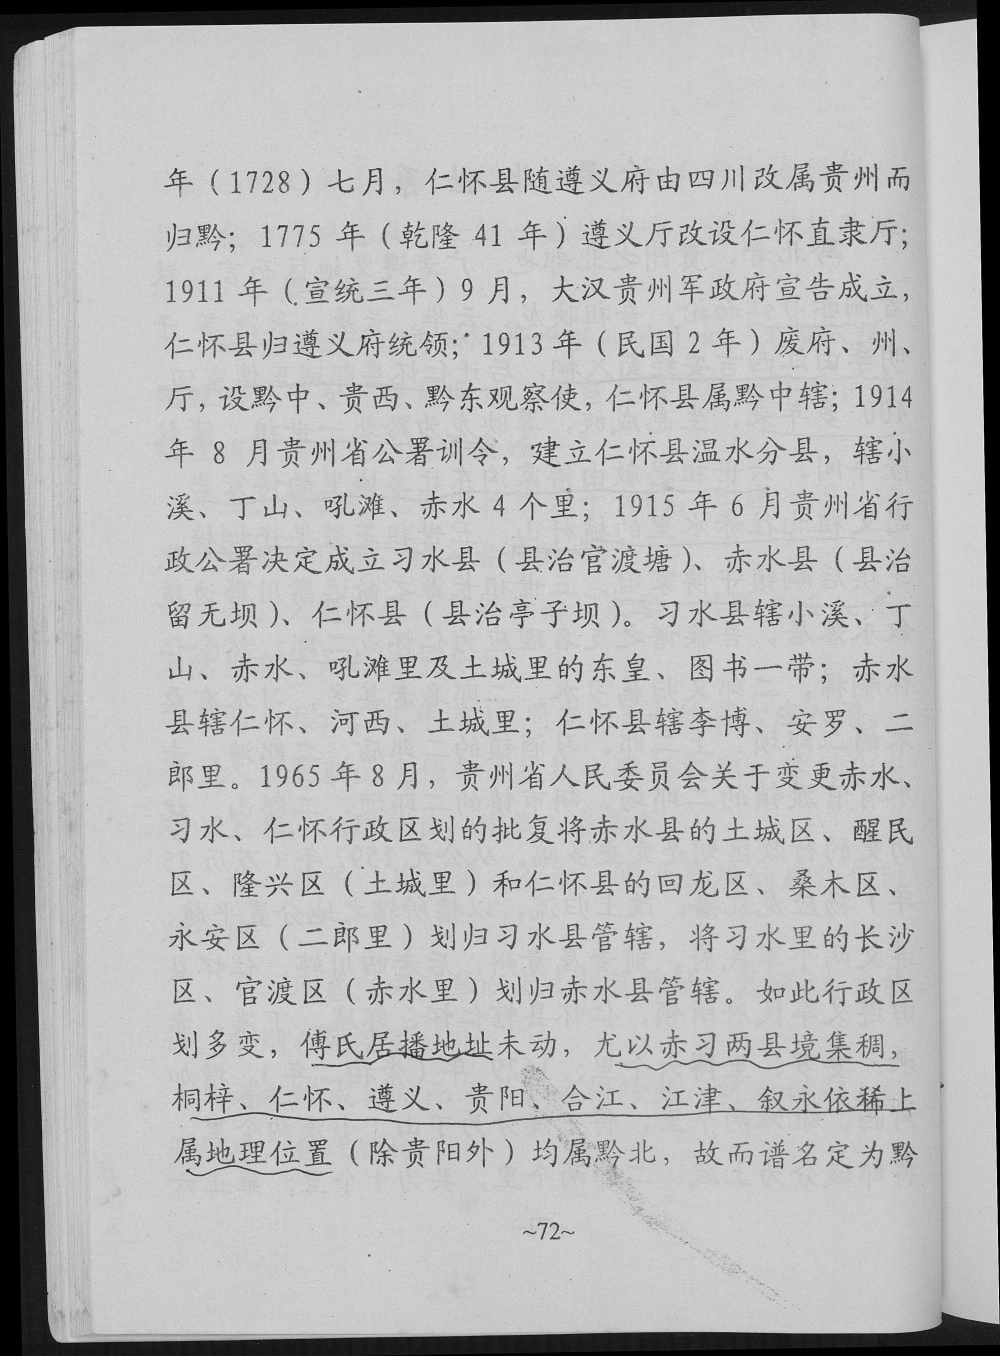 年（1728）七月，仁怀县随遵义府由四川改属贵州而
归黔；1775 年（乾隆 41 年）遵义厅改设仁怀直隶厅；
1911 年（宣统三年）9 月，大汉贵州军政府宣告成立，
仁怀县归遵义府统领；1913 年（民国 2 年）废府、州、
厅，设黔中、贵西、黔东观察使，仁怀县属黔中辖；1914
年 8 月贵州省公署训令，建立仁怀县温水分县，辖小
溪、丁山、吼滩、赤水 4 个里；1915 年 6 月贵州省行
政公署决定成立习水县（县治官渡塘）、赤水县（县治
留无坝）、仁怀县（县治亭子坝）。习水县辖小溪、丁
山、赤水、吼滩里及土城里的东皇、图书一带；赤水
县辖仁怀、河西、土城里；仁怀县辖李博、安罗、二
郎里。1965 年 8 月，贵州省人民委员会关于变更赤水、
习水、仁怀行政区划的批复将赤水县的土城区、醒民
区、隆兴区（土城里）和仁怀县的回龙区、桑木区、
永安区（二郎里）划归习水县管辖，将习水里的长沙
区、官渡区（赤水里）划归赤水县管辖。如此行政区
划多变，傅氏居播地址未动，尤以赤习两县境集稠，
桐梓、仁怀、遵义、贵阳、合江、江津、叙永依稀上
属地理位置（除贵阳外）均属黔北，故而谱名定为黔
~72~